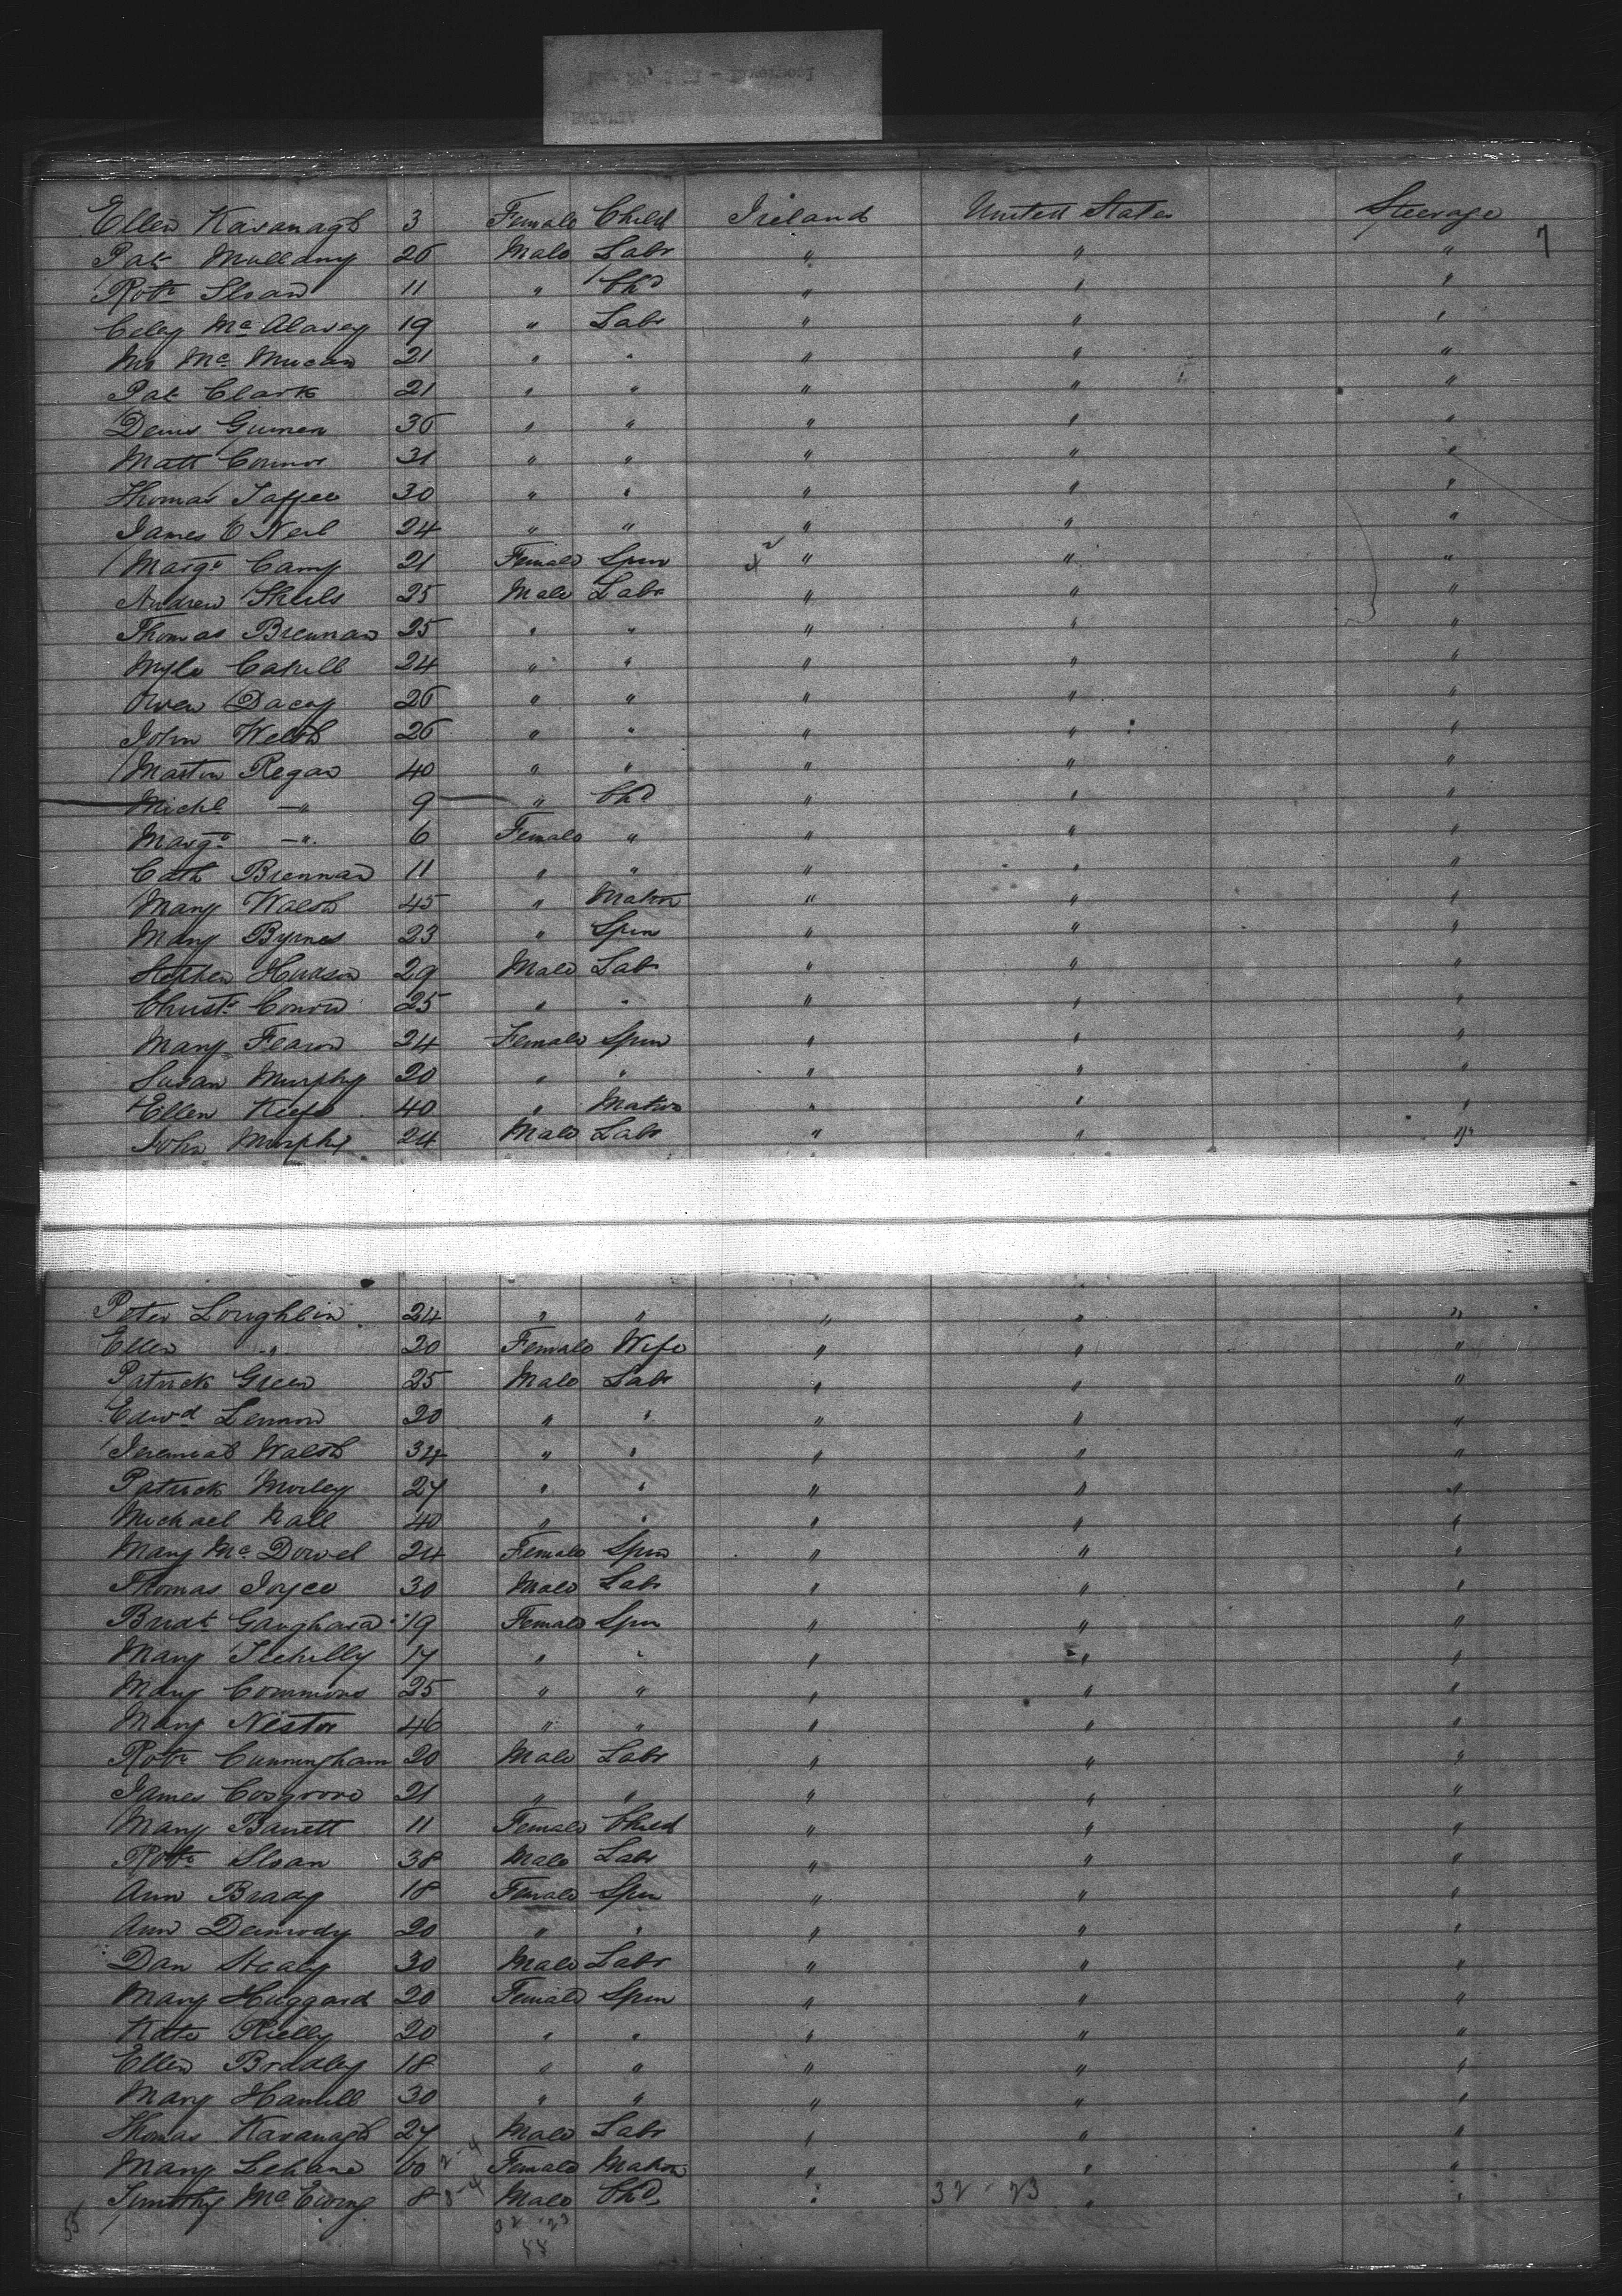 7
Ellen Kavanagh 3 Female Child Ireland United States Steerage
Pat Mullany 26 Male Labr " " "
Robt Sloan 11 " Chd " " "
19 " Labr " " "
21 " " " " "
Pat Clark 21 " " " " "
Denis 36 " " " " "
Matt Connor 31 " " " " "
Thomas Taffee 30 " " " " "
James O Neil 24 " " " " "
Margt Camp 21 Female Spin " " "
Andrew Sheils 25 Male Labr " " "
Thomas Brennan 25 " " " " "
Myle Cahill 24 " " " " "
Owen Dacey 26 " " " " "
John Welsh 26 " " " " "
Martin Regan 40 " " " " "
Michl — " 9 " Chd " " "
Margt — " 6 Female " " " "
Cath Brennan 11 " " " " "
Mary Walsh 45 " Matron " " "
Mary Byrnes 23 " Spin " " "
Stephen Hudson 29 Male Lab " " "
Christr 25 " " " " "
Mary Fearon 24 Female Spin " " "
Susan Murphy 20 " " " " "
Ellen Keefe 40 " Matron " " "
John Murphy 24 Male Labr " " "
Peter Loughlin 24 " " " " "
Ellen " 20 Female Wife " " "
Patrick Green 25 Male Labr " " "
Edwd Lennon 20 " " " " "
Jeremiah Walsh 34 " " " " "
Patrick Morley 27 " " " " "
Michael Nall 40 " " " " "
Mary Mc Dowel 24 Female Spin " " "
Thomas Joyce 30 Male Labr " " "
Bridt 19 Female Spin " " "
Mary 17 " " " " "
Mary Commons 25 " " " " "
Mary Nestor 46 " " " " "
Robt Cunningham 20 Male Labr " " "
James Cosgrove 21 " " " " "
Mary Barrett 11 Female Child " " "
Robt Sloan 38 Male Labr " " "
Ann Brady 18 Female Spin " " "
Ann Dermody 20 " " " " "
Dan 30 Male Labr " " "
Mary Huggard 20 Female Spin " " "
Kate Rielly 20 " " " " "
Ellen Bradley 18 " " " " "
Mary Hamill 30 " " " " "
Thomas Kavanagh 27 Male Labr " " "
Mary Lehane 60 Female Matron " " "
Timothy Mc Ewing 8 Male Chd " 32 - 23 " "
55
32 - 23
88